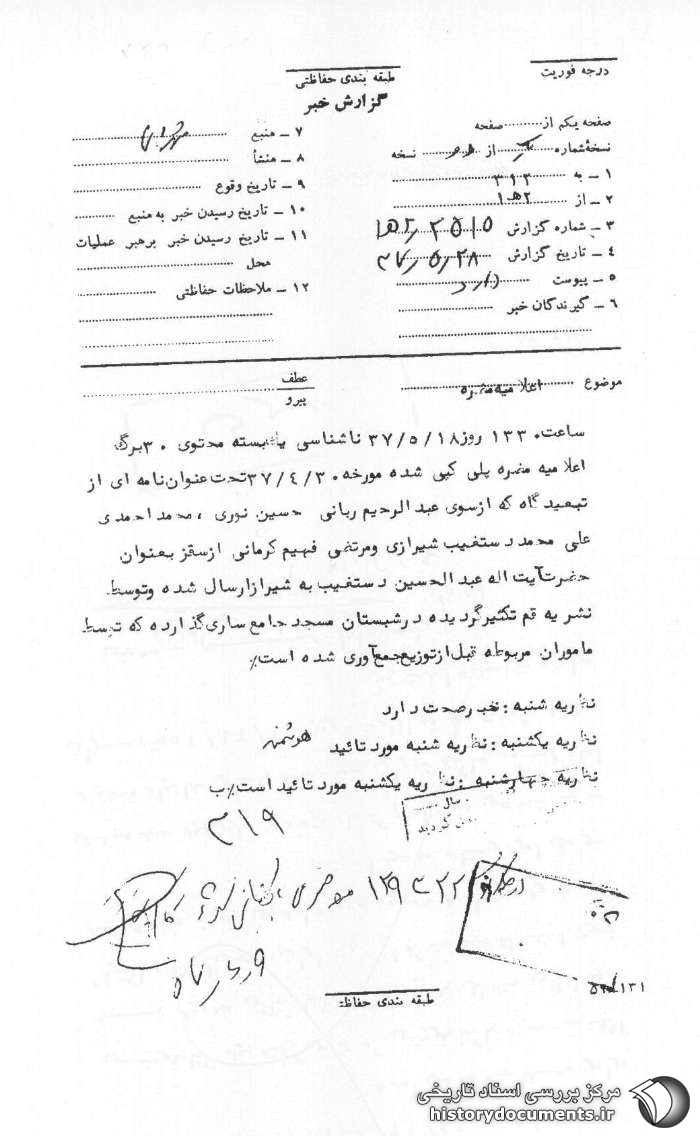 درجه فوریت
طبقه بندی حفاظتی
گزارش خبر
صفحه یکم از ........ صفحه
نسخه شماره ........ از ........ نسخه
۱ ــ به ۳۱۲
۲ ــ از ۲هـ۱
۳ ــ شماره گزارش
۴ ــ تاریخ گزارش
۵ ــ پیوست دارد
۶ ــ گیرندگان خبر
۷ ــ منبع
۸ ــ منشأ
۹ ــ تاریخ وقوع
۱۰ ــ تاریخ رسیدن خبر به منبع
۱۱ ــ تاریخ رسیدن خبر برهبر عملیات
محل
۱۲ ــ ملاحظات حفاظتی
موضوع اعلامیه مضره
عطف
پیرو
ساعت ۱۳۳۰ روز ۳۷/۵/۱۸ ناشناسی یک بسته محتوی ۳۰ برگ
اعلامیه مضره پلی کپی شده مورخه ۳۷/۴/۳۰ تحت عنوان نامه ای از
تبعیدگاه که از سوی عبدالرحیم ربانی حسین نوری ، محمد احمدی
علی محمد دستغیب شیرازی ومرتضی فهیم کرمانی از سقز بعنوان
حضرت آیت اله عبدالحسین دستغیب به شیراز ارسال شده وتوسط
نشریه قم تکثیر گردیده در شبستان مسجد جامع ساری گذارده که توسط
ماموران مربوطه قبل از توزیع جمع آوری شده است٪
نظریه شنبه : خبر صحت دارد
نظریه یکشنبه : نظریه شنبه مورد تائید هوشمند
نظریه چهارشنبه : نظریه یکشنبه مورد تائید است٪ ب
سال
گردید
۳۱۹
طبقه بندی حفاظتی
مرکز بررسی اسناد تاریخی
historydocuments.ir